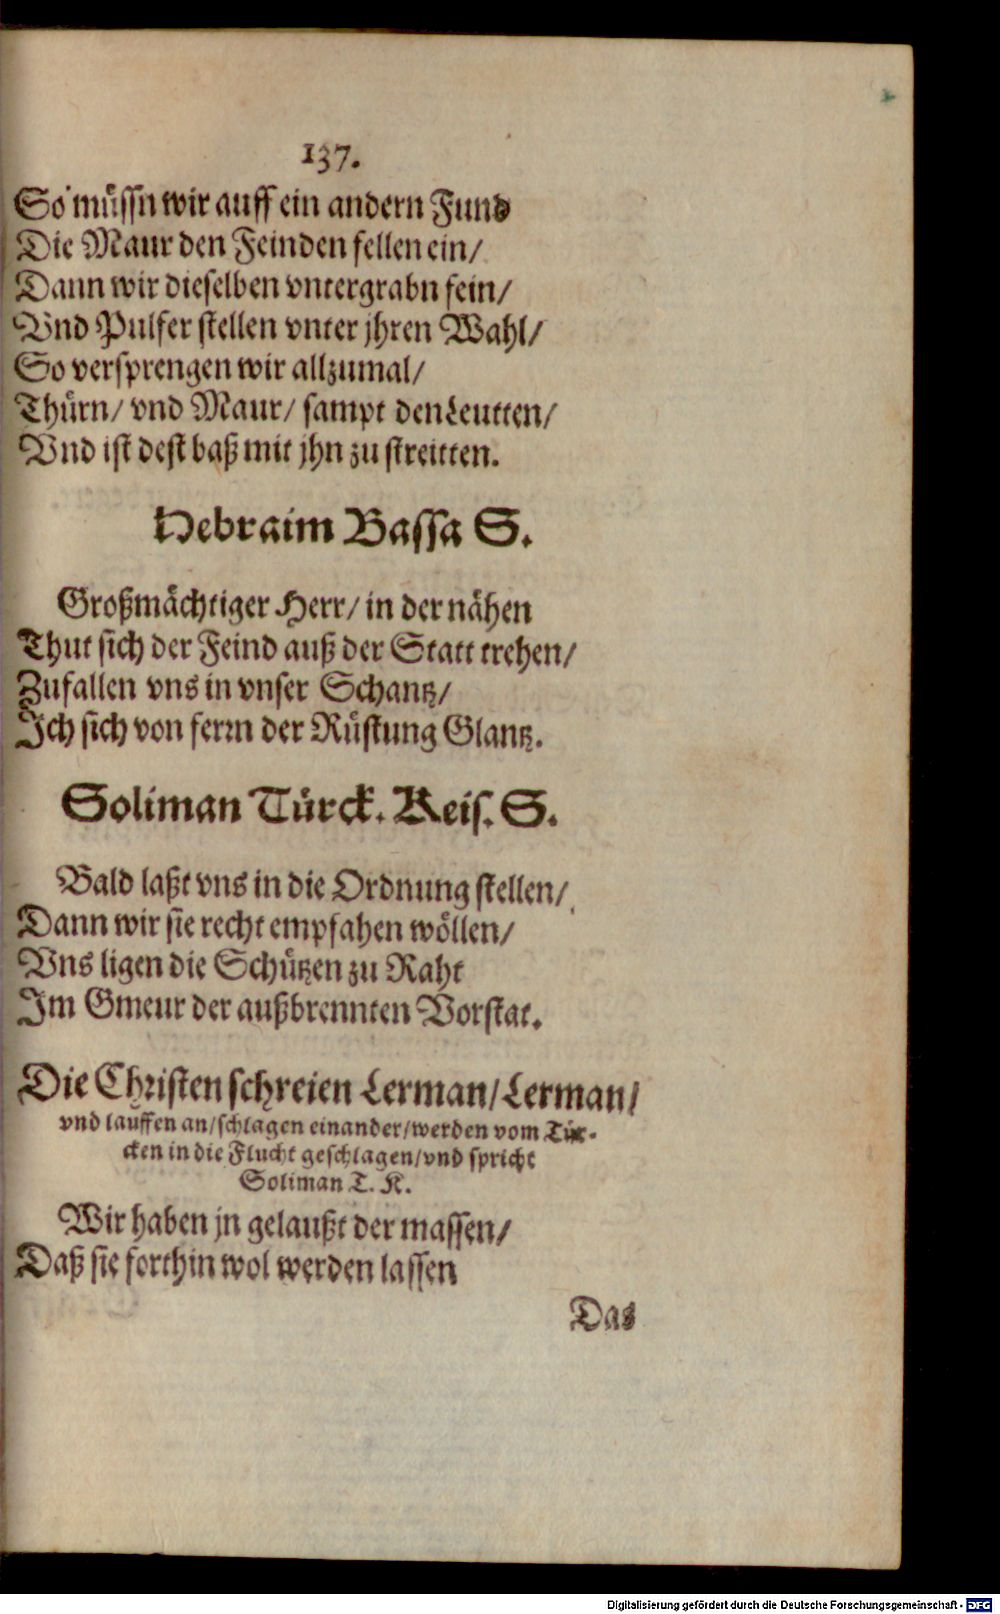 137.
So müssn wir auff ein andern Fund
Die Maur den Feinden fellen ein/
Dann wir dieselben vntergrabn fein/
Vnd Pulfer stellen vnter jhren Wahl/
So versprengen wir allzumal/
Thürn/ vnd Maur/ sampt den Leutten/
Vnd ist dest baß mit jhn zu streitten.
Hebraim Bassa S.
Großmächtiger Herr/ in der nähen
Thut sich der Feind auß der Statt trehen/
Zufallen vns in vnser Schantz/
Ich sich von ferrn der Rüstung Glantz.
Soliman Türck. Keis. S.
Bald laßt vns in die Ordnung stellen/
Dann wir sie recht empfahen wöllen/
Vns ligen die Schützen zu Raht
Im Gmeur der außbrennten Vorstat.
Die Christen schreien Lerman/ Lerman/
vnd lauffen an/ schlagen einander/ werden vom Tür-
cken in die Flucht geschlagen/ vnd spricht
Soliman T. K.
Wir haben jn gelaußt der massen/
Daß sie forthin wol werden lassen
Das
Digitalisierung gefördert durch die Deutsche Forschungsgemeinschaft - DFG